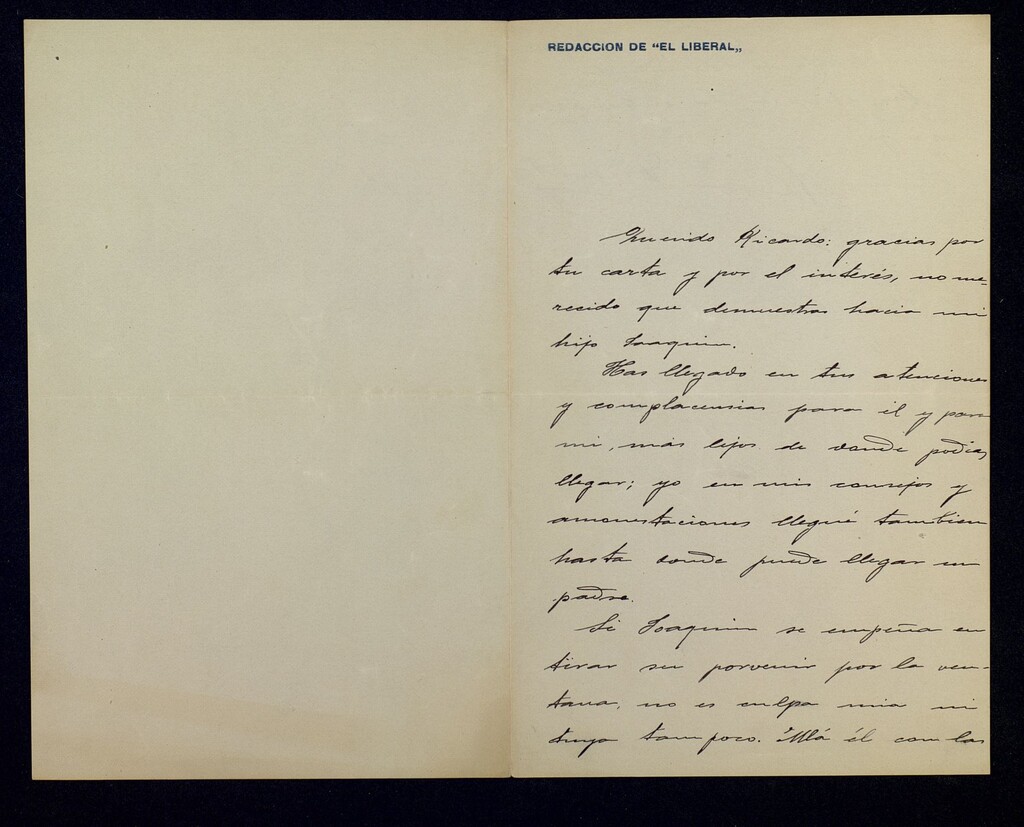 REDACCION DE “EL LIBERAL„
Querido Ricardo: gracias por
tu carta y por el interés, no me-
recido que demuestras hacia mi
hijo Joaquin.
Has llegado en tus atenciones
y complacencias para él y para
mi, más lejos de donde podias
llegar; yo en mis consejos y
amonestaciones llegué tambien
hasta donde puede llegar un
padre.
Si Joaquin se empeña en
tirar su porvenir por la ven-
tana, no es culpa mia ni
tuya tampoco. Allá él con las